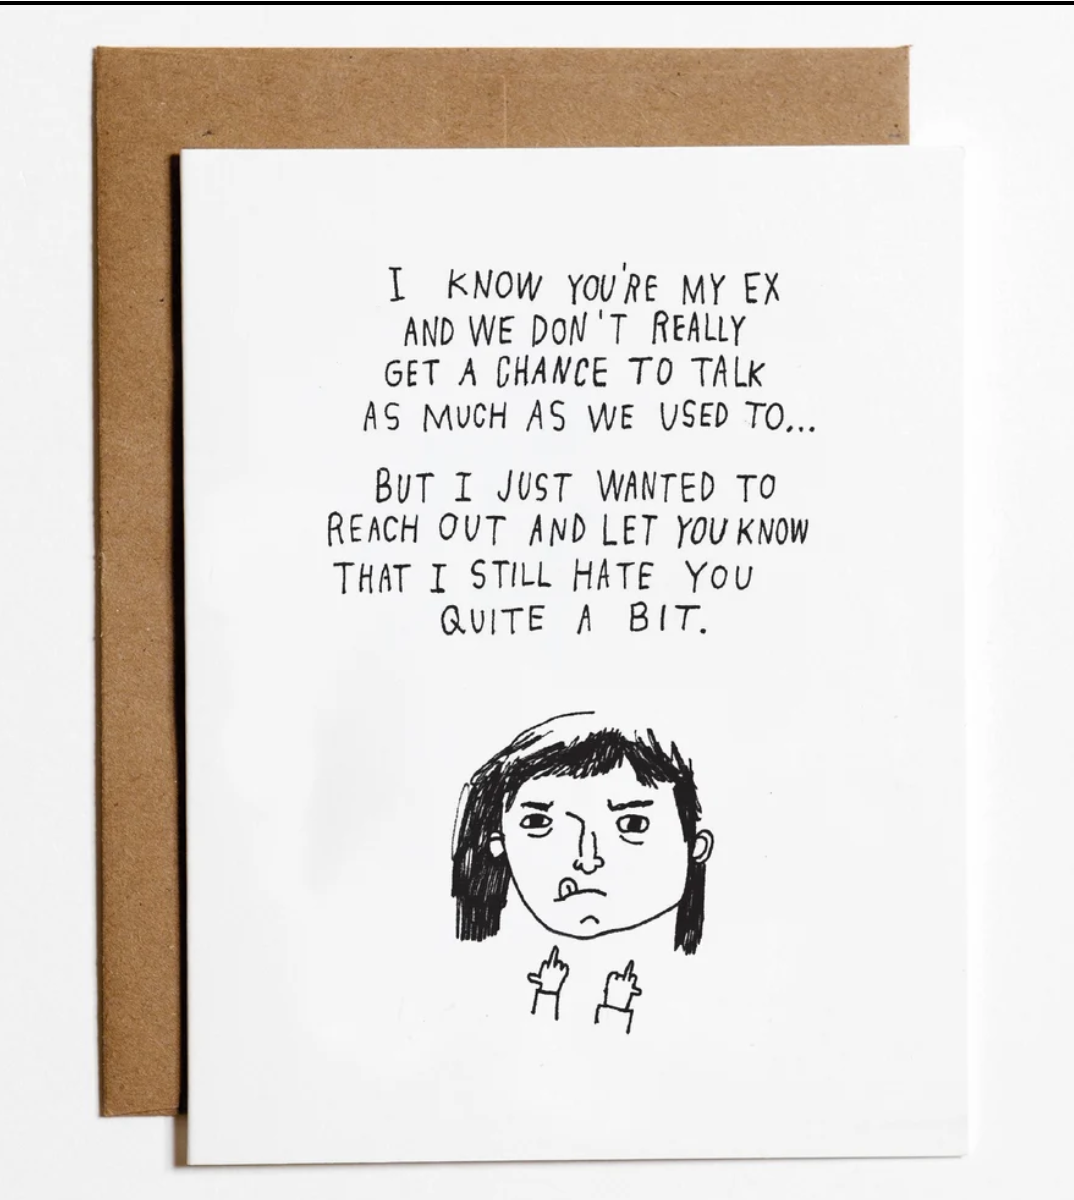 I KNOW YOU'RE MY EX
AND WE DON'T REALLY
GET A CHANCE TO TALK
AS MUCH AS WE USED TO...
BUT I JUST WANTED TO
REACH OUT AND LET YOU KNOW
THAT I STILL HATE YOU
QUITE A BIT.